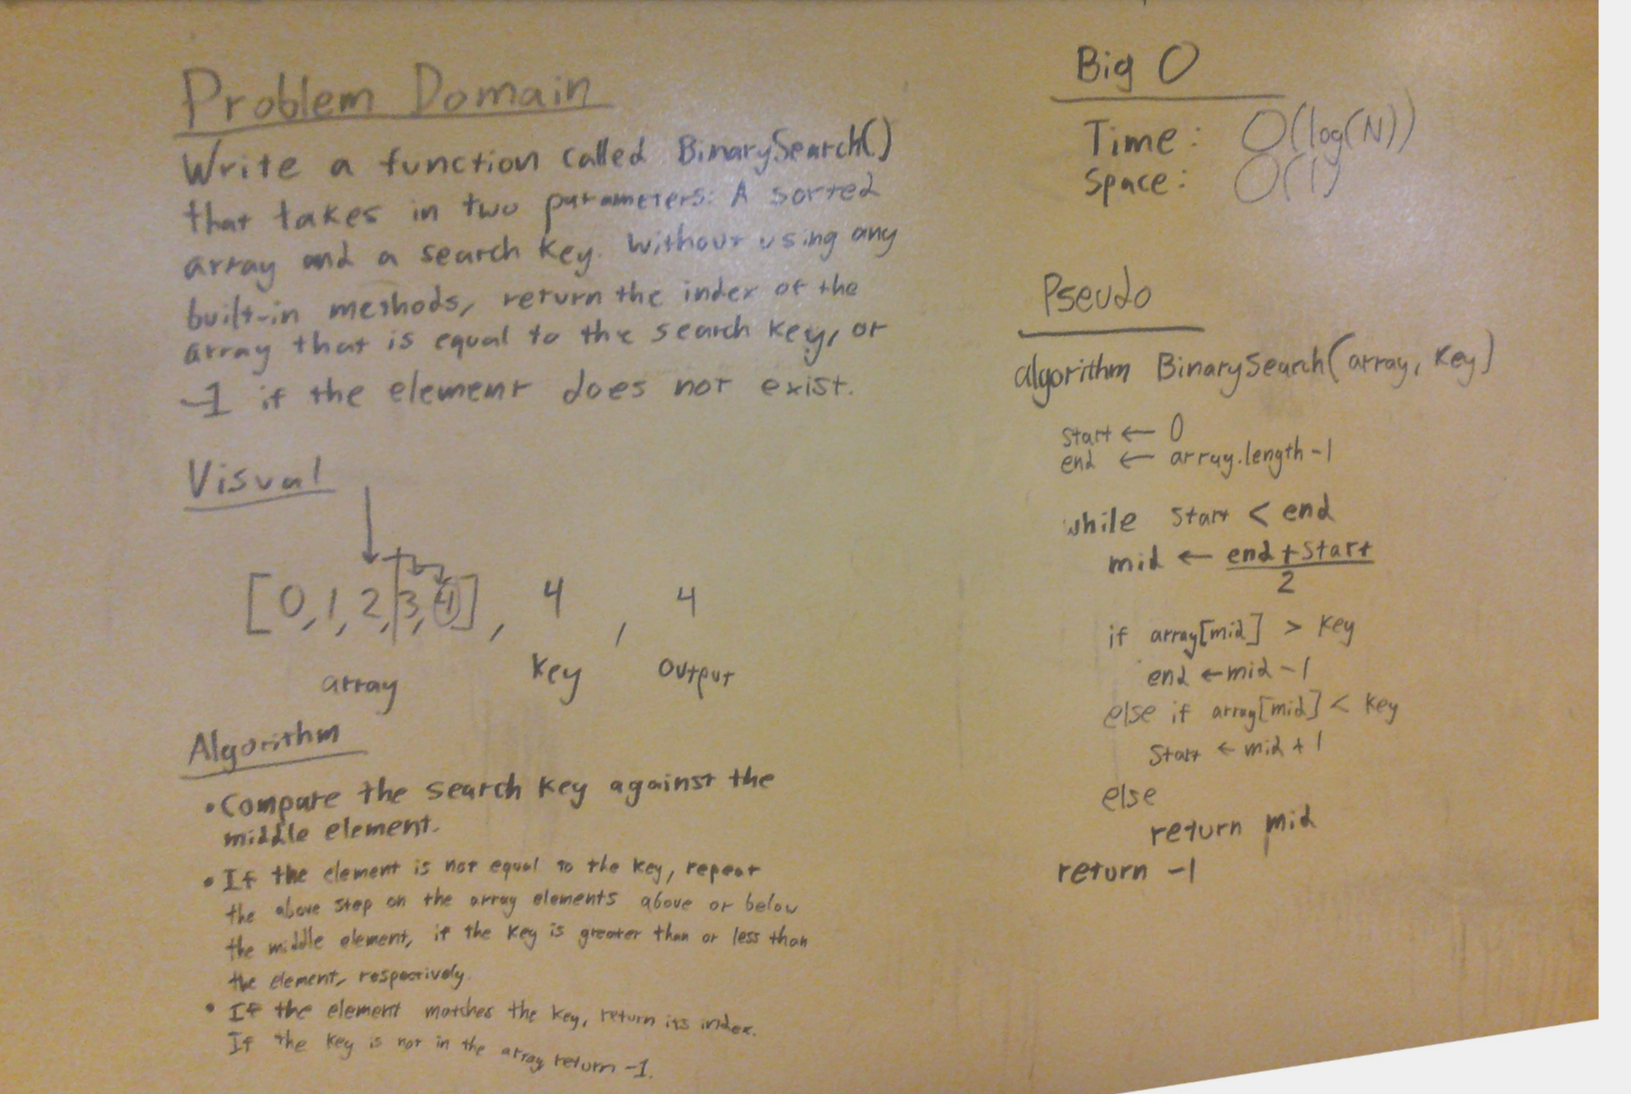 Problem Domain
Write a function called BinarySearch()
that takes in two parameters: A sorted
array and a search key. Without using any
built-in methods, return the index of the
array that is equal to the search key, or
-1 if the element does not exist.
Visual
[0,1,2,3,4], 4, 4
array key output
Algorithm
• Compare the search key against the
middle element.
• If the element is not equal to the key, repeat
the above step on the array elements above or below
the middle element, if the key is greater than or less than
the element, respectively.
• If the element matches the key, return its index.
If the key is not in the array return -1.
Big O
Time: O(log(N))
Space: O(1)
Pseudo
algorithm BinarySearch(array, key)
start ← 0
end ← array.length-1
while start < end
mid ← end+start
2
if array[mid] > key
end ← mid-1
else if array[mid] < key
start ← mid+1
else
return mid
return -1